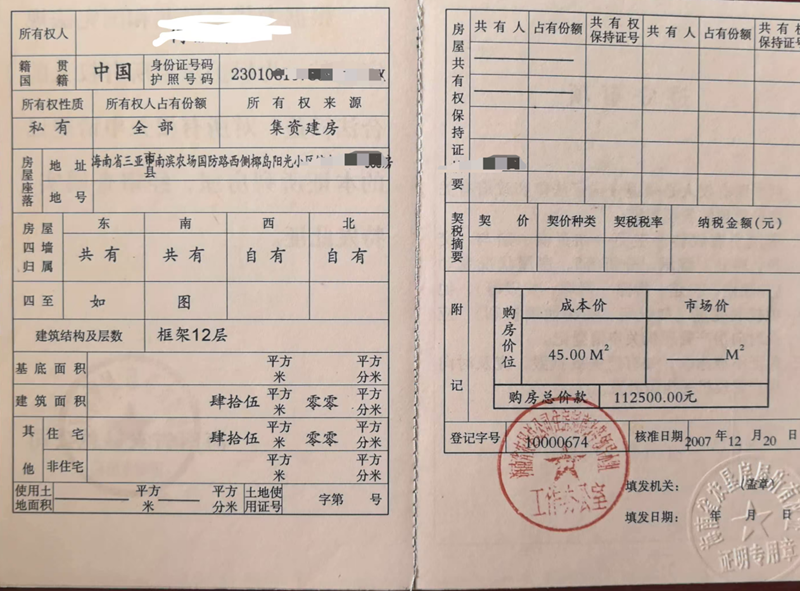 所有权人
籍贯
国籍
中国
身份证号码
护照号码
所有权性质 所有权人占有份额 所有权来源
私有 全部 集资建房
房屋座落
地址 海南省三亚市县南滨农场国防路西侧椰岛阳光小区 房
地号
房屋四墙归属
东 南 西 北
共有 共有 自有 自有
四至 如图
建筑结构及层数 框架12层
基底面积 平方米 平方分米
建筑面积 肆拾伍 平方米 零零 平方分米
其他
住宅 肆拾伍 平方米 零零 平方分米
非住宅 平方米 平方分米
使用土地面积 平方米 平方分米 土地使用证号 字第 号
房屋共有权保持证摘要
共有人 占有份额 共有权保持证号 共有人 占有份额 共有权保持证号
契税摘要
契价 契价种类 契税税率 纳税金额(元)
附记
购房价位
成本价 市场价
45.00 M² M²
购房总价款 112500.00元
登记字号 10000674 核准日期 2007年12月20日
工作办公室
填发机关: (盖章)
填发日期: 年 月 日
证明专用章